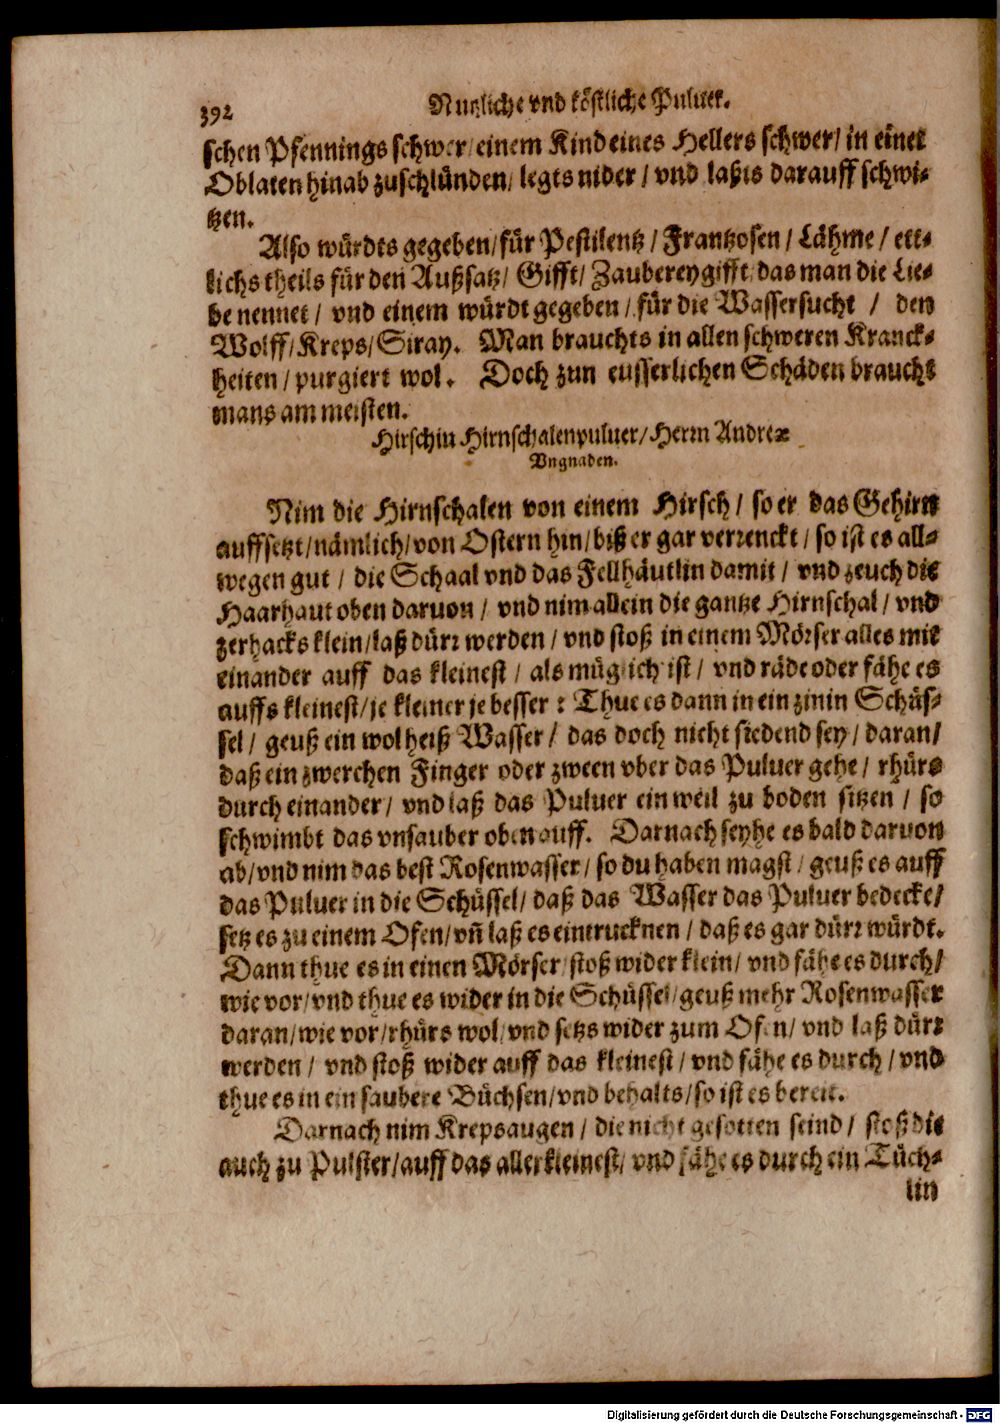 392 Nutzliche vnd köstliche Puluer.
schen Pfennings schwer/ einem Kind eines Hellers schwer/ in einer
Oblaten hinab zuschlünden/ legts nider / vnd laßts darauff schwi-
tzen.
Also würdts gegeben/ für Pestilentz / Frantzosen / Lähme / ett-
lichs theils für den Außsatz/ Gifft/ Zaubereygifft/ das man die Lie-
be nennet / vnd einem würdt gegeben / für die Wassersucht / den
Wolff/ Kreps/ Siray. Man brauchts in allen schweren Kranck-
heiten / purgiert wol. Doch zun eusserlichen Schäden braucht
mans am meisten.
Hirschin Hirnschalenpuluer/ Herrn Andreæ
Vngnaden.
Nim die Hirnschalen von einem Hirsch / so er das Gehirn
auffsetzt/ nämlich/ von Ostern hin/ biß er gar verrenckt / so ist es all-
wegen gut / die Schaal vnd das Fellhäutlin damit / vnd zeuch die
Haarhaut oben daruon / vnd nim allein die gantze Hirnschal / vnd
zerhacks klein/ laß dürr werden / vnd stoß in einem Mörser alles mit
einander auff das kleinest / als müglich ist / vnd räde oder fähe es
auffs kleinest/ je kleiner je besser : Thue es dann in ein zinin Schüs-
sel / geuß ein wol heiß Wasser / das doch nicht siedend sey / daran/
daß ein zwerchen Finger oder zween vber das Puluer gehe / rhürs
durch einander / vnd laß das Puluer ein weil zu boden sitzen / so
schwimbt das vnsauber oben auff. Darnach seyhe es bald daruon
ab/ vnd nim das best Rosenwasser / so du haben magst / geuß es auff
das Puluer in die Schüssel/ daß das Wasser das Puluer bedecke/
setz es zu einem Ofen/ vñ laß es eintrucknen / daß es gar dürr würdt.
Dann thue es in einen Mörser/ stoß wider klein/ vnd fähe es durch/
wie vor/ vnd thue es wider in die Schüssel/ geuß mehr Rosenwasser
daran/ wie vor/ rhürs wol/ vnd setzs wider zum Ofen/ vnd laß dürr
werden / vnd stoß wider auff das kleinest / vnd fähe es durch / vnd
thue es in ein saubere Büchsen/ vnd behalts/ so ist es bereit.
Darnach nim Krepsaugen / die nicht gesotten seind / stoß die
auch zu Pulster/ auff das allerkleinest/ vnd fähe es durch ein Tüch-
lin
Digitalisierung gefördert durch die Deutsche Forschungsgemeinschaft - DFG